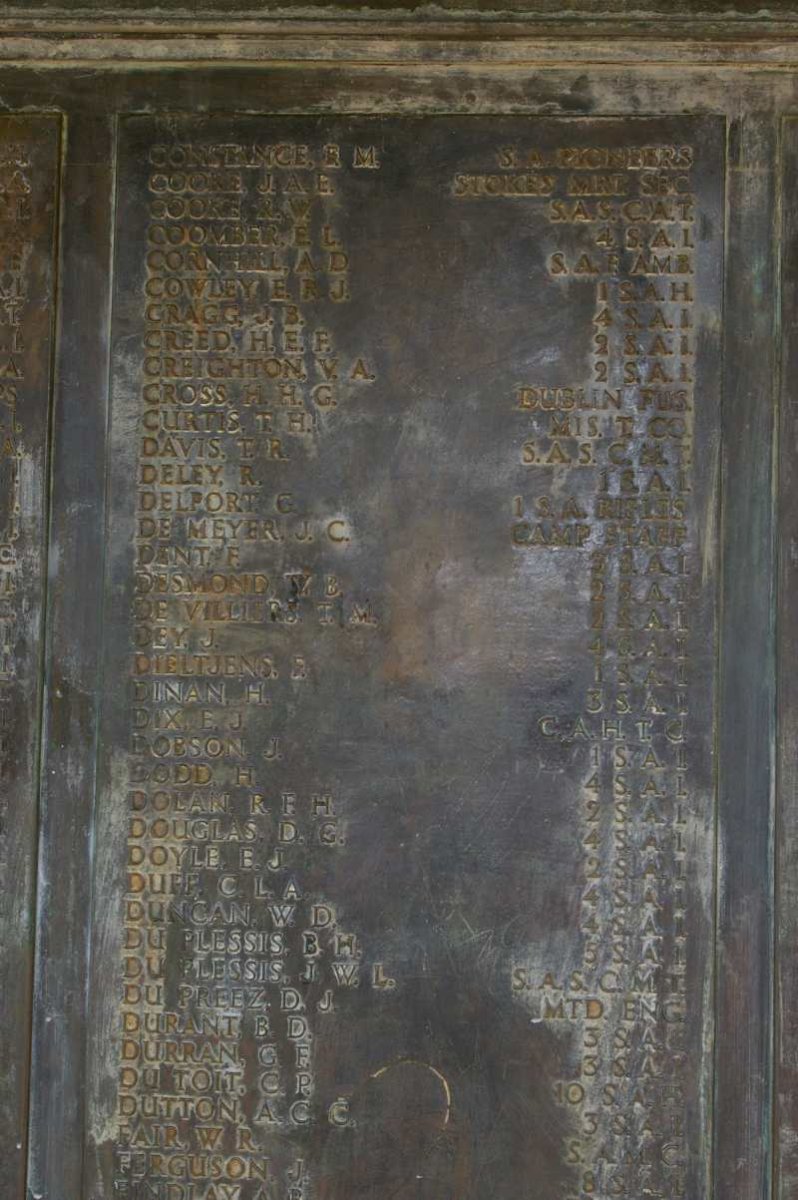 CONSTANCE, R. M. S. A. PIONEERS
COOKE, J. A. E. STOKES MRT. SEC.
COOKE, X. W. S.A.S.C.A.T.
COOMBER, E. L. 4 S. A. I.
CORNHILL, A. D. S. A. F. AMB.
COWLEY, E. R. J. 1 S. A. H.
CRAGG, J. B. 4 S. A. I.
CREED, H. E. F. 2 S. A. I.
CREIGHTON, V. A. 2 S. A. I.
CROSS, H. H. G. DUBLIN FUS.
CURTIS, T. H. MIS. T. CO.
DAVIS, T. R. S.A.S.C.M.T.
DELEY, R. 1 A. I.
DELPORT, G. 1 S.A. RIFLES
DE MEYER, J. C. CAMP STAFF
DENT, F. 2 S. A. I.
DESMOND, W. B. 2 S. A. I.
DE VILLIERS, T. M. 2 S. A. I.
DEY, J. 4 S. A. I.
DIELTJENS, F. 1 S. A. I.
DINAN, H. 3 S. A. I.
DIX, E. J. C. A. H. T. C.
DOBSON, J. 1 S. A. I.
DODD, H. 4 S. A. I.
DOLAN, R. F. H. 2 S. A. I.
DOUGLAS, D. G. 4 S. A. I.
DOYLE, E. J. 2 S. A. I.
DUFF, C. L. A. 4 S. A. I.
DUNCAN, W. D. 4 S. A. I.
DU PLESSIS, B. H. 5 S. A. I.
DU PLESSIS, J. W. L. S. A. S. C. M. T.
DU PREEZ, D. J. MTD. ENG.
DURANT, B. D. 3 S. A. I.
DURRAN, G. F. 3 S. A. I.
DU TOIT, C. P. 10 S. A. H.
DUTTON, A. C. C. 3 S. A. I.
FAIR, W. R. S. A. M. C.
FERGUSON, J. 8 S. A. I.
FINDLAY, A.